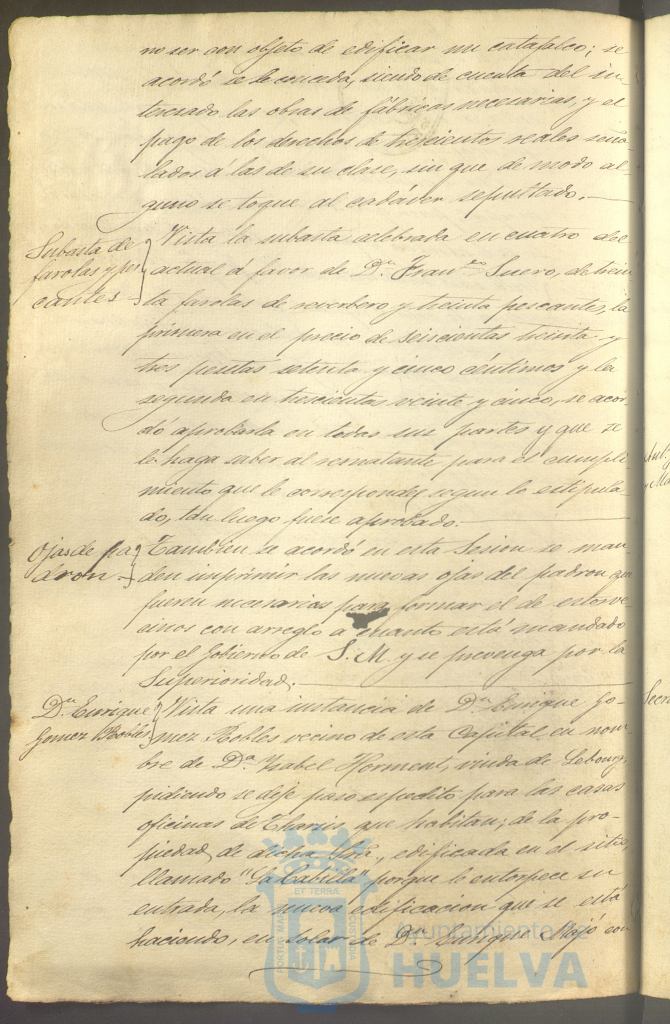 no ser con objeto de edificar un catafalco; se
acordó se le conceda, siendo de cuenta del in-
teresado las obras de fábricas necesarias, y el
pago de los derechos de trescientos reales seña-
lados á las de su clase, sin que de modo al-
guno se toque al cadáver sepultado.
Subasta de
farolas y pes
cantes
Vista la subasta celebrada en cuatro del
actual á favor de Dn. Franco. Suero, de trein-
ta farolas de reverbero y treinta pescantes, la
primera en el precio de seiscientas treinta y
tres pesetas setenta y cinco céntimos y la
segunda en trescientas veinte y cinco, se acor-
dó aprobarla en todas sus partes y que se
le haga saber al rematante para el cumpli-
miento que le corresponde, segun lo estipula-
do, tan luego fuese aprobado.
Ojas de pa
dron
Tambien se acordó en esta Sesion se man-
den imprimir las nuevas ojas del padron que
fueren necesarias para formar el de estos ve-
cinos con arreglo a cuanto está mandado
por el Gobierno de S. M. y se prevenga por la
Superioridad.
Dn. Enrique
Gomez Robles
Vista una instancia de Dn. Enrique Go-
mez Robles vecino de esta Capital, en nom-
bre de Da. Isabel Horment, viuda de Lebourg,
pidiendo se deje paso espedito para las casas
oficinas de Tharsis que habitan, de la pro-
piedad de dicha Sra., edificada en el sitio
llamado "La Calzilla" porque le entorpece su
entrada, la nueva edificacion que se está
haciendo, en solar de Dn. Enrique Mojó con
Ayuntamiento de
HUELVA